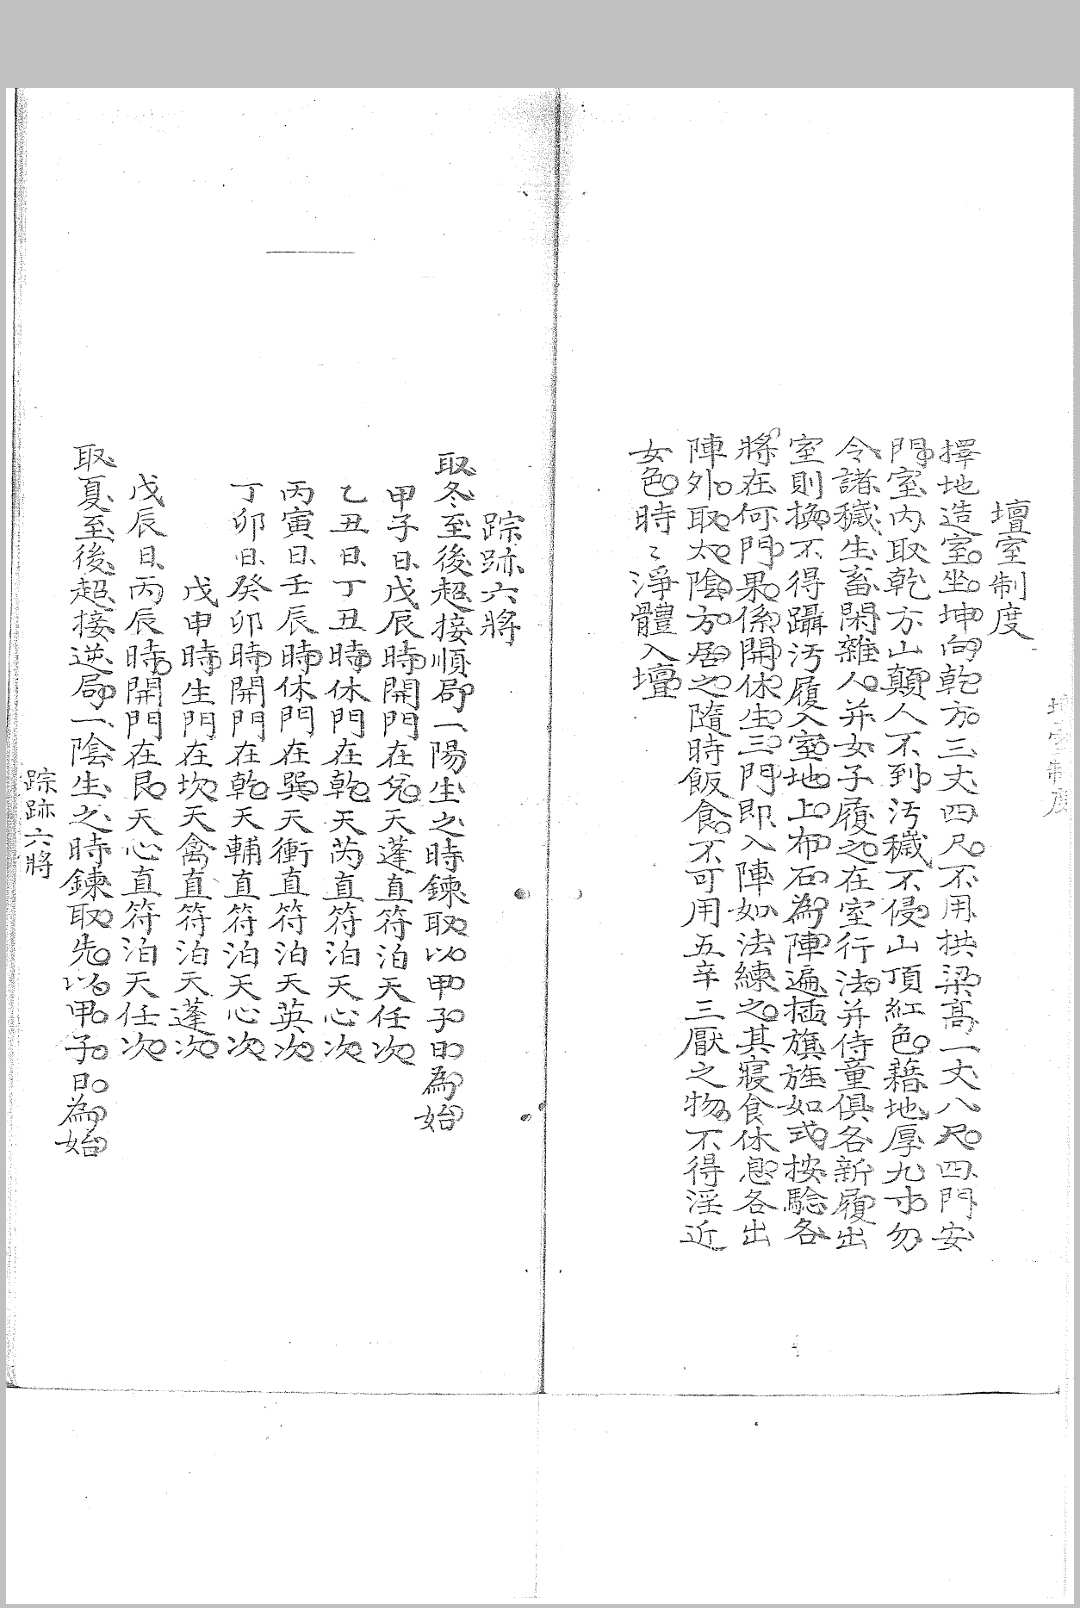 壇室制度
壇室制度
擇地造室坐坤向乾方三丈四尺不用拱梁高一丈八尺四門安
門室內取乾方山顛人不到汚穢不侵山頂紅色藉地厚九寸勿
令諸穢生畜閑雜人并女子履之在室行法并侍童俱各新履出
室則換不得躡汚履入室地上布石為陣遍插旗旌如式按騐各
將在何門果係開休生三門即入陣如法練之其寢食休息各出
陣外取太陰方居之隨時飯食不可用五辛三厭之物不得淫近
女色時〻淨體入壇
踪跡六將
取冬至後超接順局一陽生之時鍊取以甲子日為始
甲子日戊辰時開門在兌天蓬直符泊天任次
乙丑日丁丑時休門在乾天芮直符泊天心次
丙寅日壬辰時休門在巽天衝直符泊天英次
丁卯日癸卯時開門在乾天輔直符泊天心次
戊申時生門在坎天禽直符泊天蓬次
戊辰日丙辰時開門在艮天心直符泊天任次
取夏至後超接逆局一陰生之時鍊取先以甲子日為始
踪跡六將